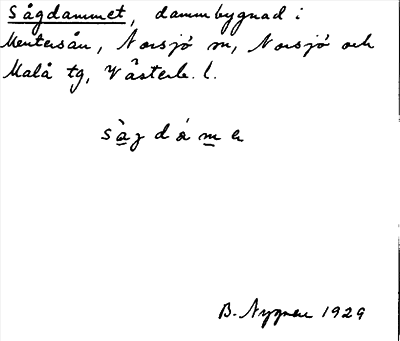 Sågdammet, dammbygnad i
Mentersån, Norsjö sn, Norsjö och
Malå tg, Västerb. l.
B. Nygren 1929